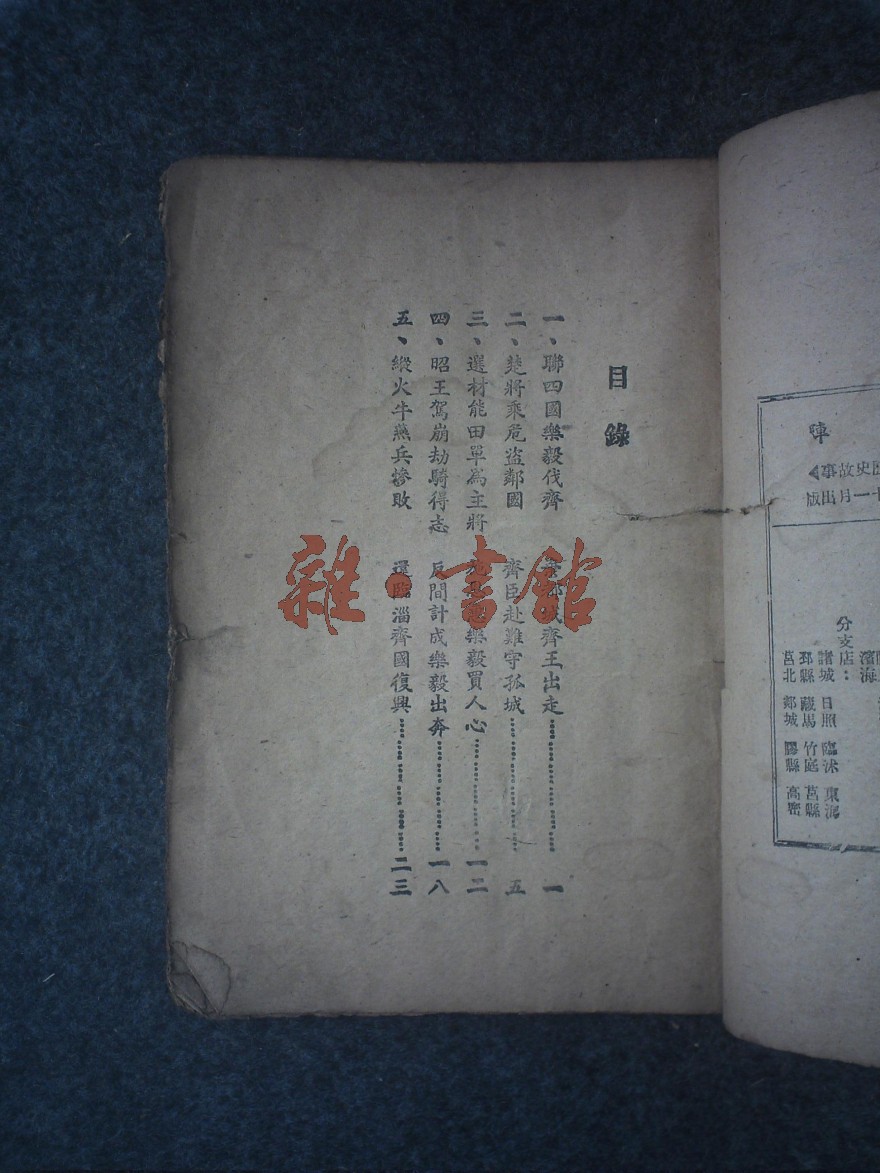 陣
史故事◀
一月出版
濱海
分支店：
諸城 日照 臨沭 東海
邳縣 藏馬 竹庭 莒縣
莒北 郯城 膠縣 高密
目錄
一、聯四國樂毅伐齊 齊王出走……一
二、楚將乘危盜鄰國 齊臣赴難守孤城……五
三、選材能田單為主將 樂毅買人心……一二
四、昭王駕崩劫騎得志 反間計成樂毅出奔……一八
五、縱火牛燕兵慘敗 還臨淄齊國復興……二三
雜·書館